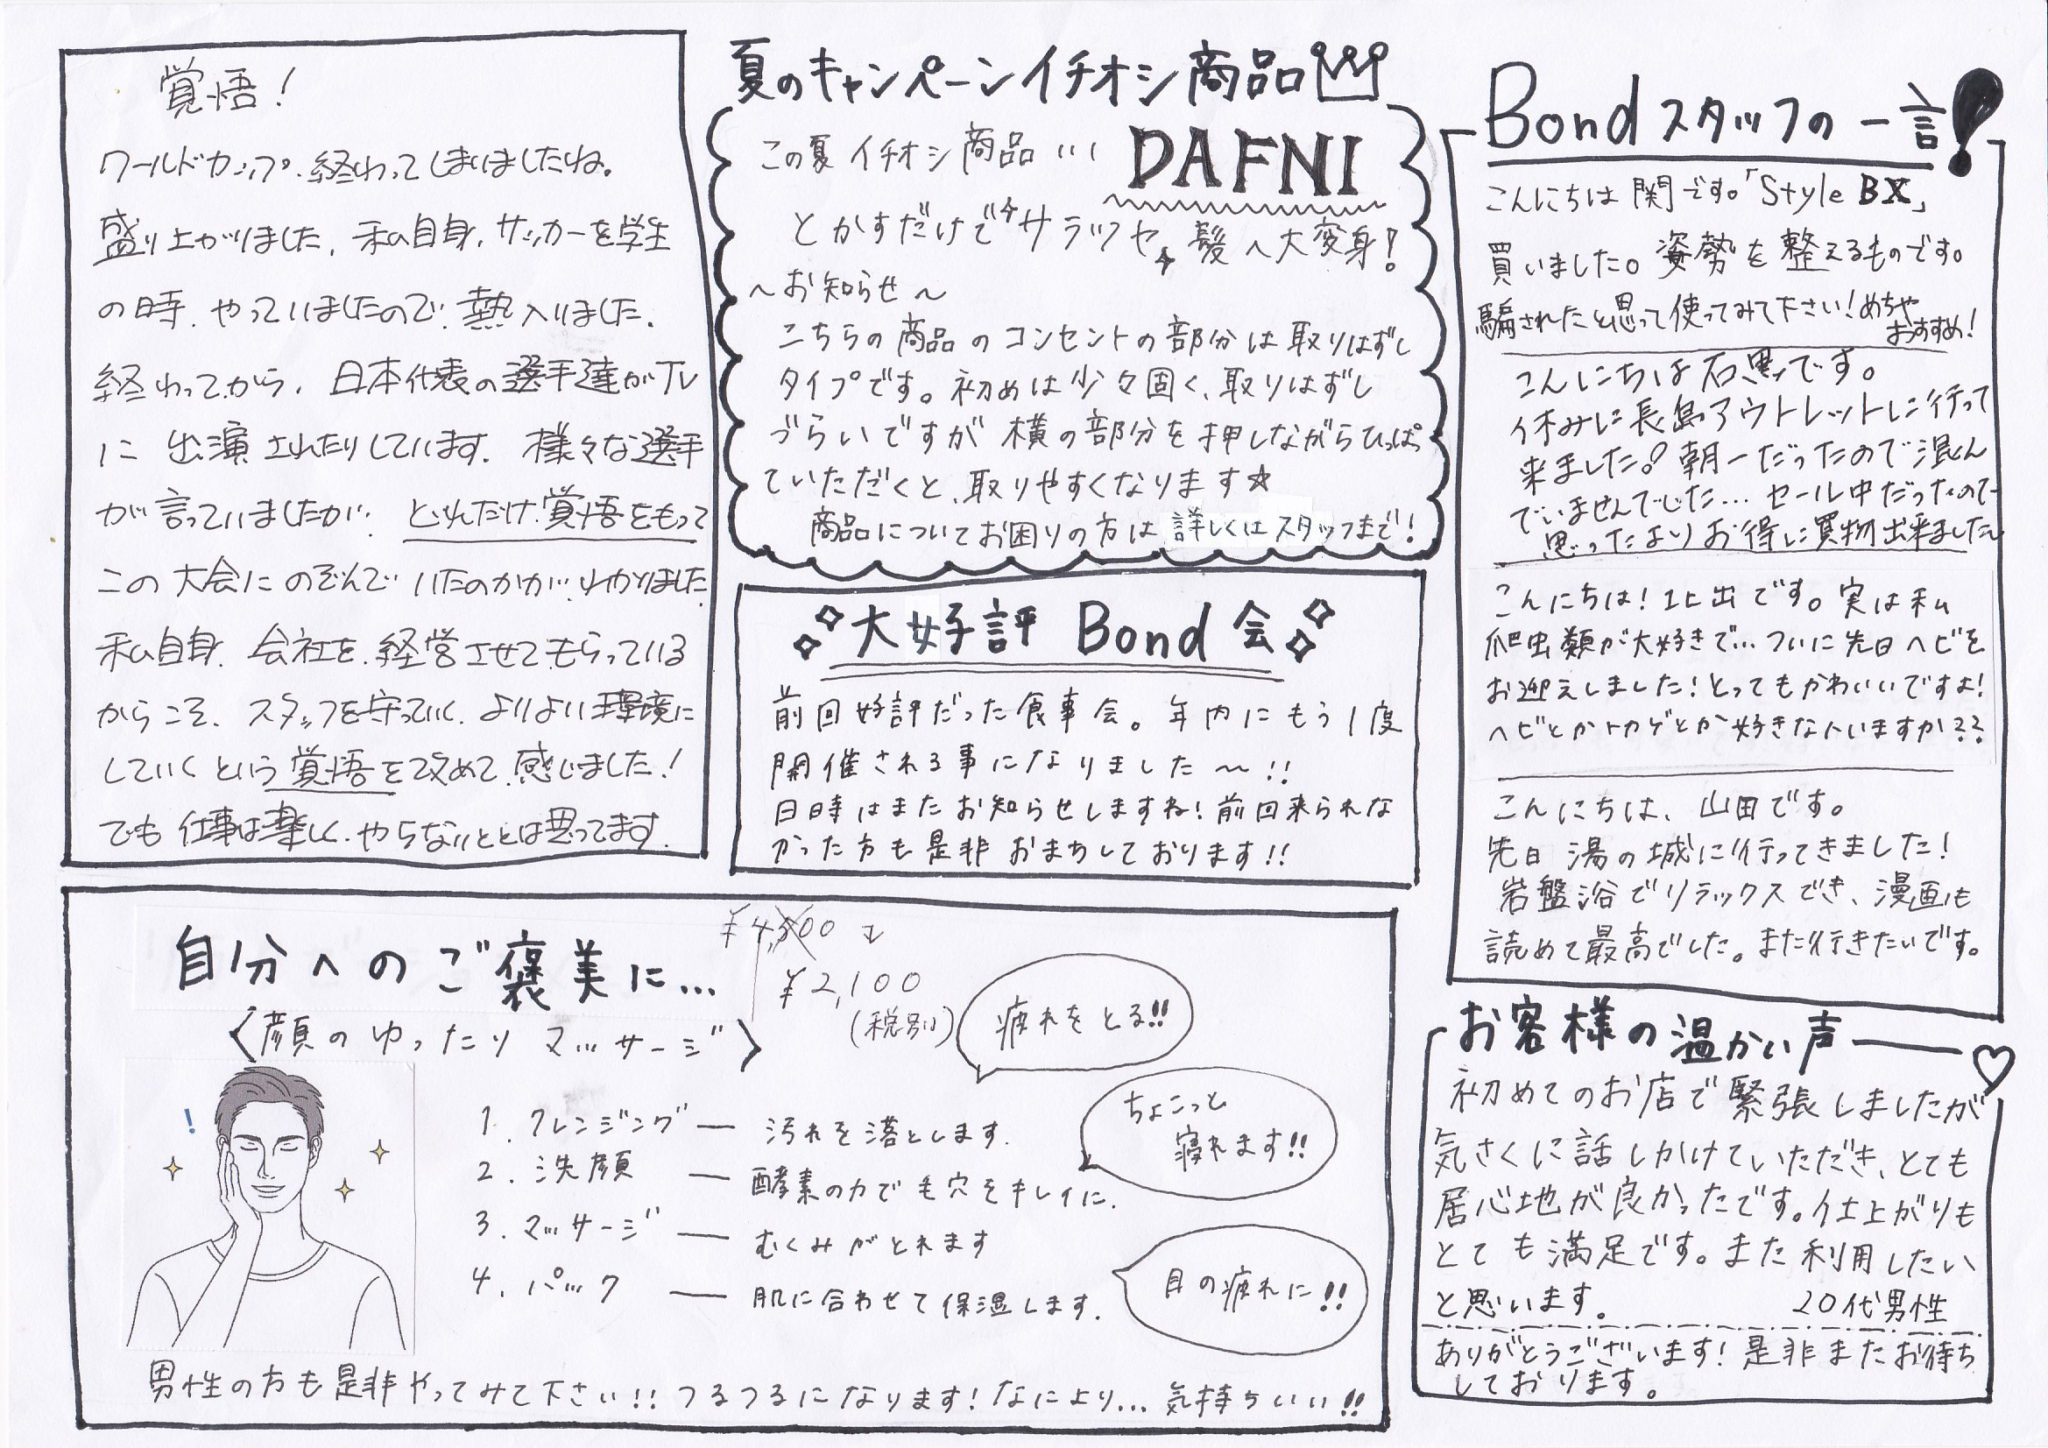 覚悟!
ワールドカップ、終わってしまいましたね。
盛り上がりました、私自身、サッカーを学生
の時、やっていましたので、熱入りました。
終わってから、日本代表の選手達がTV
に出演されたりしています。様々な選手
が言っていましたが、どれだけ覚悟をもって
この大会にのぞんでいたのかが、わかりました
私自身、会社を経営させてもらっている
からこそ、スタッフを守っていく、よりよい環境に
していくという覚悟を改めて感じました!
でも仕事は楽しく、やらないととは思ってます。
夏のキャンペーンイチオシ商品
この夏イチオシ商品… DAFNI
とかすだけでサラツヤ髪へ大変身!
〜お知らせ〜
こちらの商品のコンセントの部分は取りはずし
タイプです。初めは少々固く、取りはずし
づらいですが横の部分を押しながらひっぱっ
ていただくと、取りやすくなります☆
商品についてお困りの方は詳しくはスタッフまで!
大好評 Bond会
前回好評だった食事会。年内にもう1度
開催される事になりました〜!!
日時はまたお知らせしますね!前回来られな
かった方も是非おまちしております!!
Bondスタッフの一言!
こんにちは関です。「Style BX」
買いました。姿勢を整えるものです。
騙されたと思って使ってみて下さい!めちゃ
おすすめ!
こんにちは石黒です。
休みに長島アウトレットに行って
来ました!朝一だったので混ん
でいませんでした…セール中だったので
思ったよりお得に買物出来ました
こんにちは!北出です。実は私
爬虫類が大好きで…ついに先日ヘビを
お迎えしました!とってもかわいいですよ!
ヘビとかトカゲとか好きな人いますか??
こんにちは、山田です。
先日湯の城に行ってきました!
岩盤浴でリラックスでき、漫画も
読めて最高でした。また行きたいです。
お客様の温かい声
初めてのお店で緊張しましたが
気さくに話しかけていただき、とても
居心地が良かったです。仕上がりも
とても満足です。また利用したい
と思います。 20代男性
ありがとうございます!是非またお待ち
しております。
自分へのご褒美に…
〈顔のゆったりマッサージ〉
¥4,300
¥2,100
(税別)
疲れをとる!!
ちょこっと
寝れます!!
目の疲れに!!
1. クレンジング ― 汚れを落とします.
2. 洗顔 ― 酵素の力で毛穴をキレイに.
3. マッサージ ― むくみがとれます
4. パック ― 肌に合わせて保湿します.
男性の方も是非やってみて下さい!!つるつるになります!なにより…気持ちいい!!